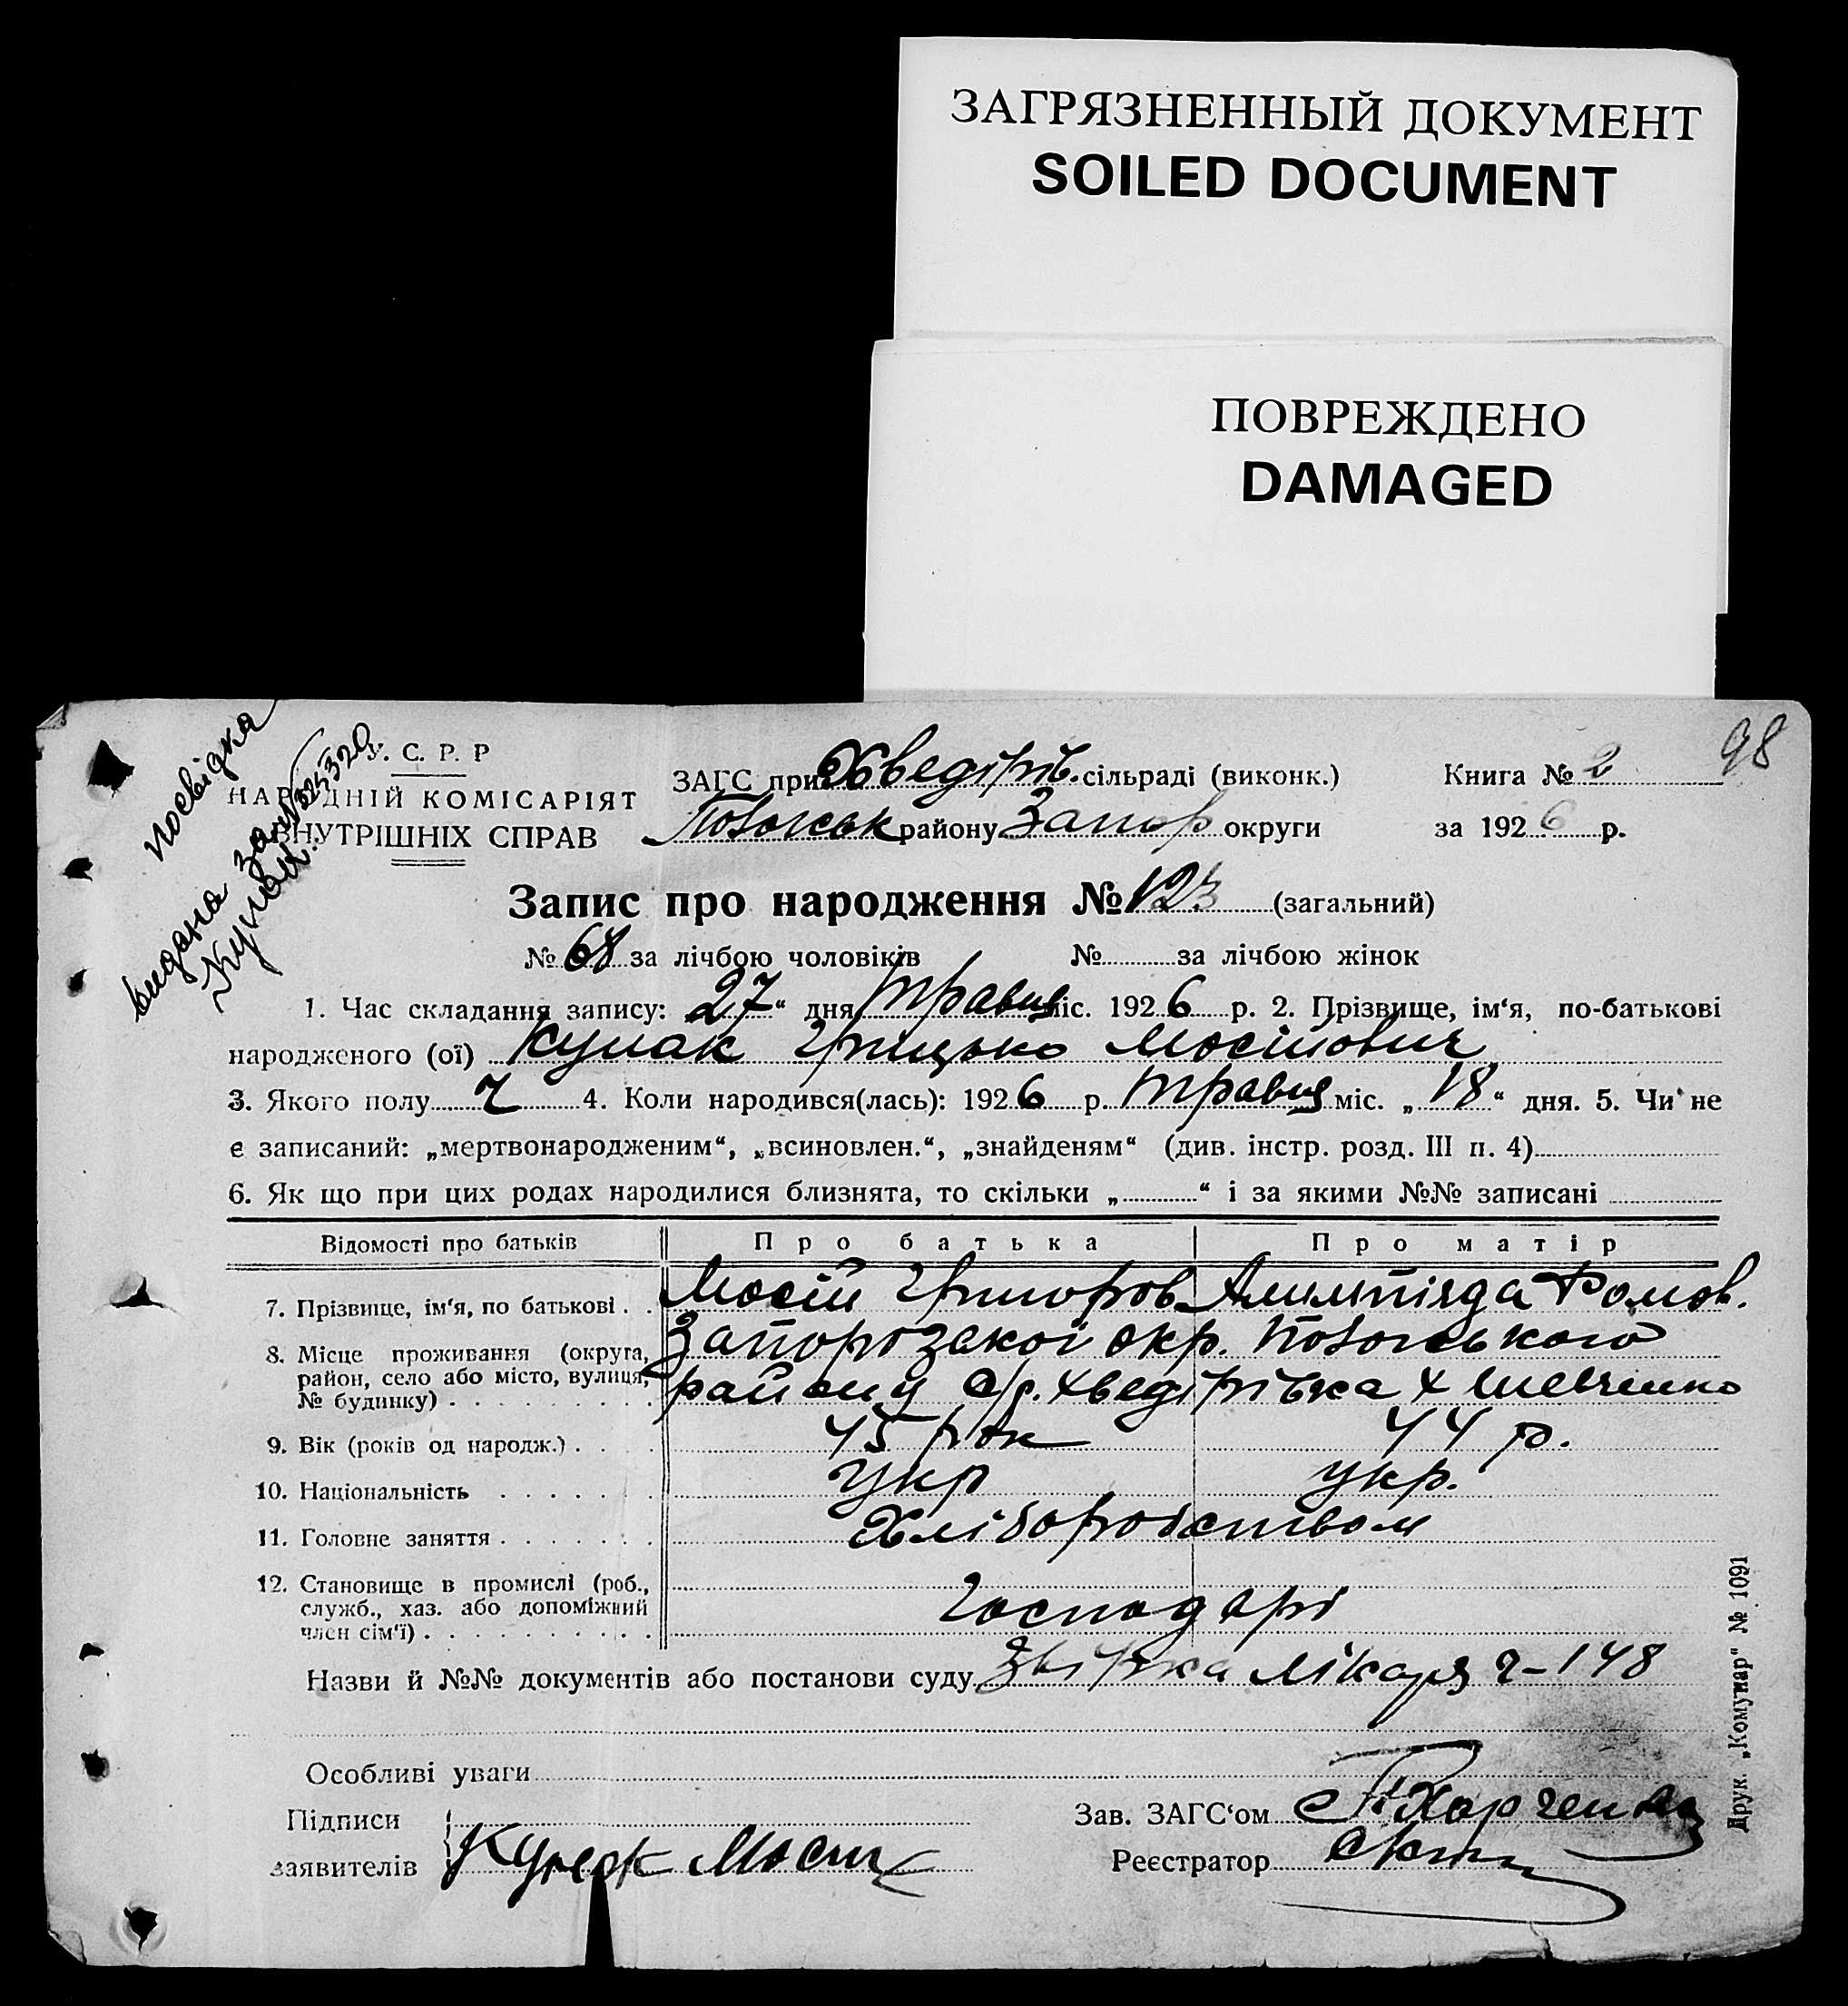 ЗАГРЯЗНЕННЫЙ ДОКУМЕНТ
SOILED DOCUMENT
ПОВРЕЖДЕНО
DAMAGED
98
посвідка
видана
У. С. Р. Р
НАРОДНІЙ КОМІСАРІЯТ
ВНУТРІШНІХ СПРАВ
ЗАГС при Хведірів. сільраді (виконк.) Книга № 2
району Запор округи за 1926 р.
Запис про народження № 123 (загальний)
№ 68 за лічбою чоловіків № за лічбою жінок
1. Час складання запису: 27“ дня травня міс. 1926 р. 2. Прізвище, ім‘я, по-батькові
народженого (ої) Кулак Грицько Мосійович
3. Якого полу ч 4. Коли народився(лась): 1926 р. травня міс. „18“ дня. 5. Чи не
є записаний: „мертвонародженим“, „всиновлен.“, „знайденям“ (див. інстр. розд. III п. 4)
6. Як що при цих родах народилися близнята, то скільки „ “ і за якими №№ записані
Відомості про батьків Про батька Про матір
7. Прізвище, ім‘я, по батькові . . Мосій Григоров. Ромов.
8. Місце проживання (округа, район, село або місто, вулиця, № будинку) . Запорозької окр.
району с/р. Хведірівка х Шевченко
9. Вік (років од народж.) . . . . 45 рок 44 р.
10. Національність . . . . . . . укр укр.
11. Головне заняття . . . . . . . Хліборобством
12. Становище в промислі (роб., служб., хаз. або допоміжний член сім‘ї) . . . . . . . . . . Господарі
Назви й №№ документів або постанови суду лікаря 2-148
Особливі уваги
Підписи
заявителів Кулак Мосій
Зав. ЗАГС‘ом Харченко
Реєстратор
Друк. „Комунар“ № 1091